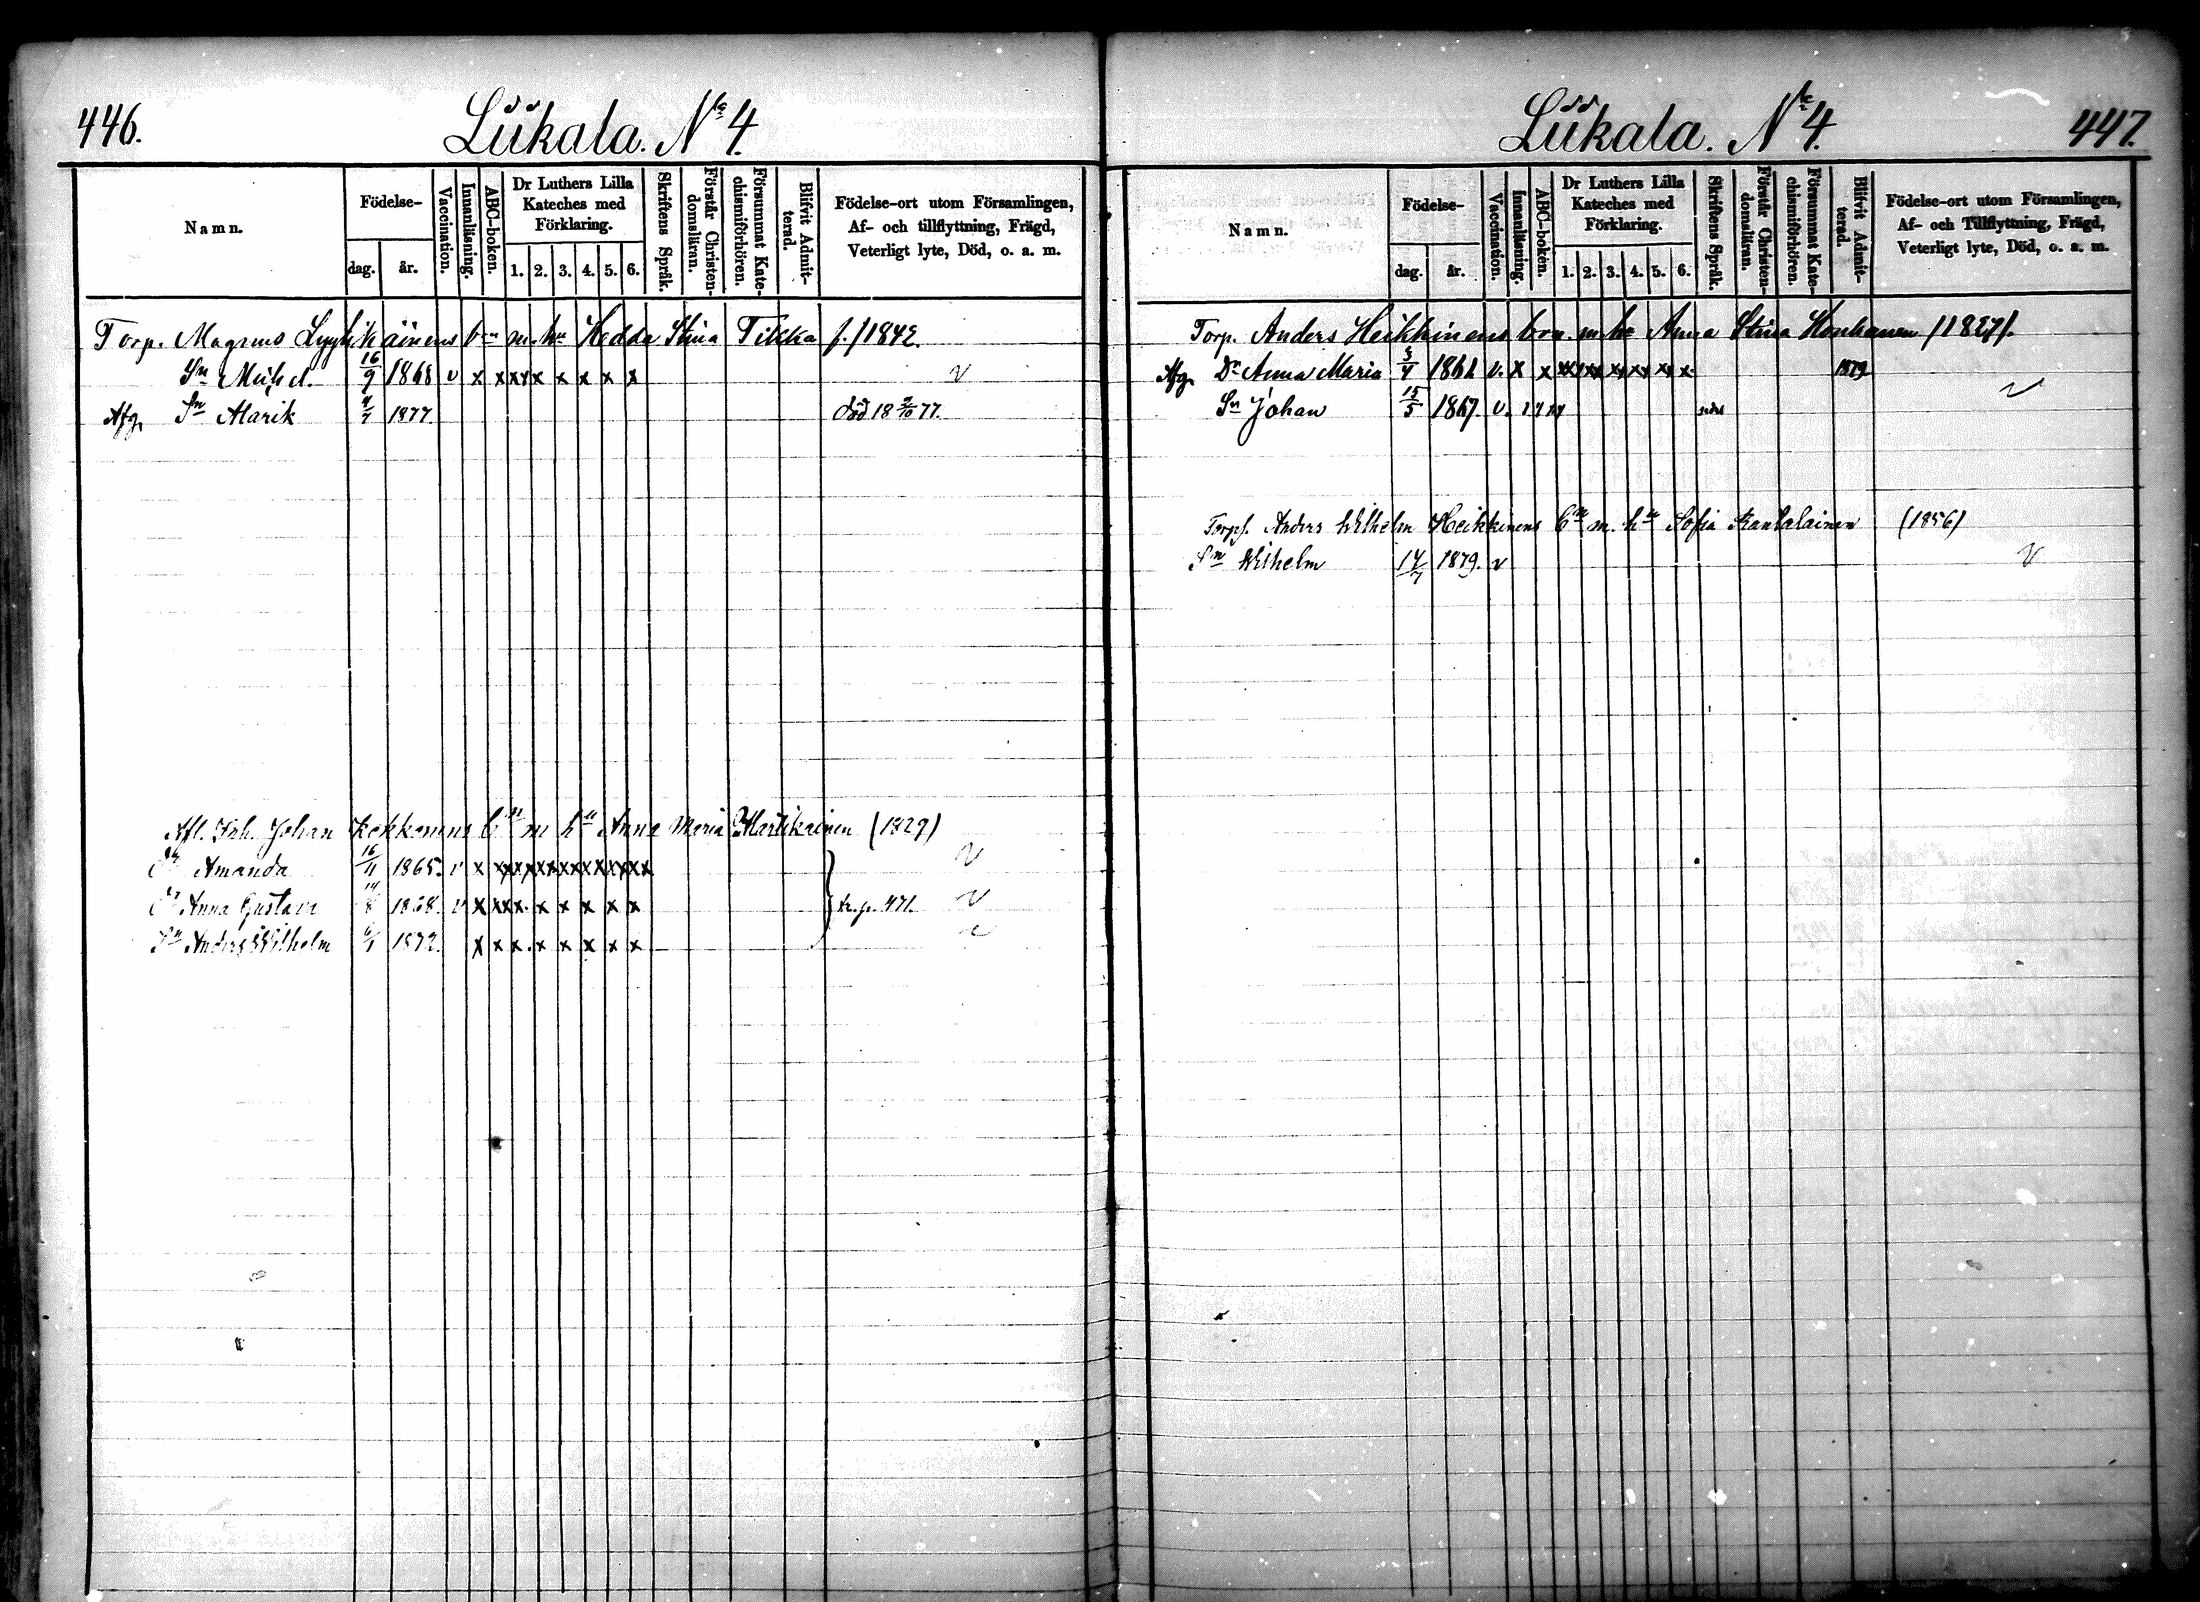 446.
Liikala. No 4.
Namn.
Födelse-
dag.
år.
Vaccination.
Innanläsning.
ABC-boken.
Dr Luthers Lilla
Kateches med
Förklaring.
1. 2. 3. 4. 5. 6.
Skriftens Språk.
Förstår Christen-
domsläran.
Försummat Kate-
chismiförhören.
Blifvit Admit-
terad.
Födelse-ort utom Församlingen,
Af- och tillflyttning, Frägd,
Veterligt lyte, Död, o. a. m.
Torp. Magnus Lyytikäinens bn m. hu Hedda Stina Tikka f. /1842.
Sn Mich el. 16/9 1868 v x x x x x x x x x v
Afg. Sn Alarik 1877. död 18 77.
Afl. Inh. Johan Kekkonens bn m hu Anna Maria Martikainen (1829)
Dr Amanda 16/11 1865. v x x x x x x x x x x x x x x x v
Dr Anna Gustava 1868. v x x x x. x x x x x tr. p. 471. v
Sn Anders Wilhelm 1872. x x x. x x x x x
447.
Liikala. No 4.
Namn.
Födelse-
dag.
år.
Vaccination.
Innanläsning.
ABC-boken.
Dr Luthers Lilla
Kateches med
Förklaring.
1. 2. 3. 4. 5. 6.
Skriftens Språk.
Förstår Christen-
domsläran.
Försummat Kate-
chismiförhören.
Blifvit Admit-
terad.
Födelse-ort utom Församlingen,
Af- och Tillflyttning, Frägd,
Veterligt lyte, Död, o. a. m.
Torp. Anders Heikkinens brn. m. hu Anna Stina Honkanen /1827/.
Afg. Dr Anna Maria 3/4 1862 v. x x xx xx xx xx xx x 1879
Sn Johan 15/5 1867. v. v
Torps. Anders Wilhelm Heikkinens bn m. hu Sofia Rantalainen (1856)
Sn Wilhelm 14/7 1879. v v